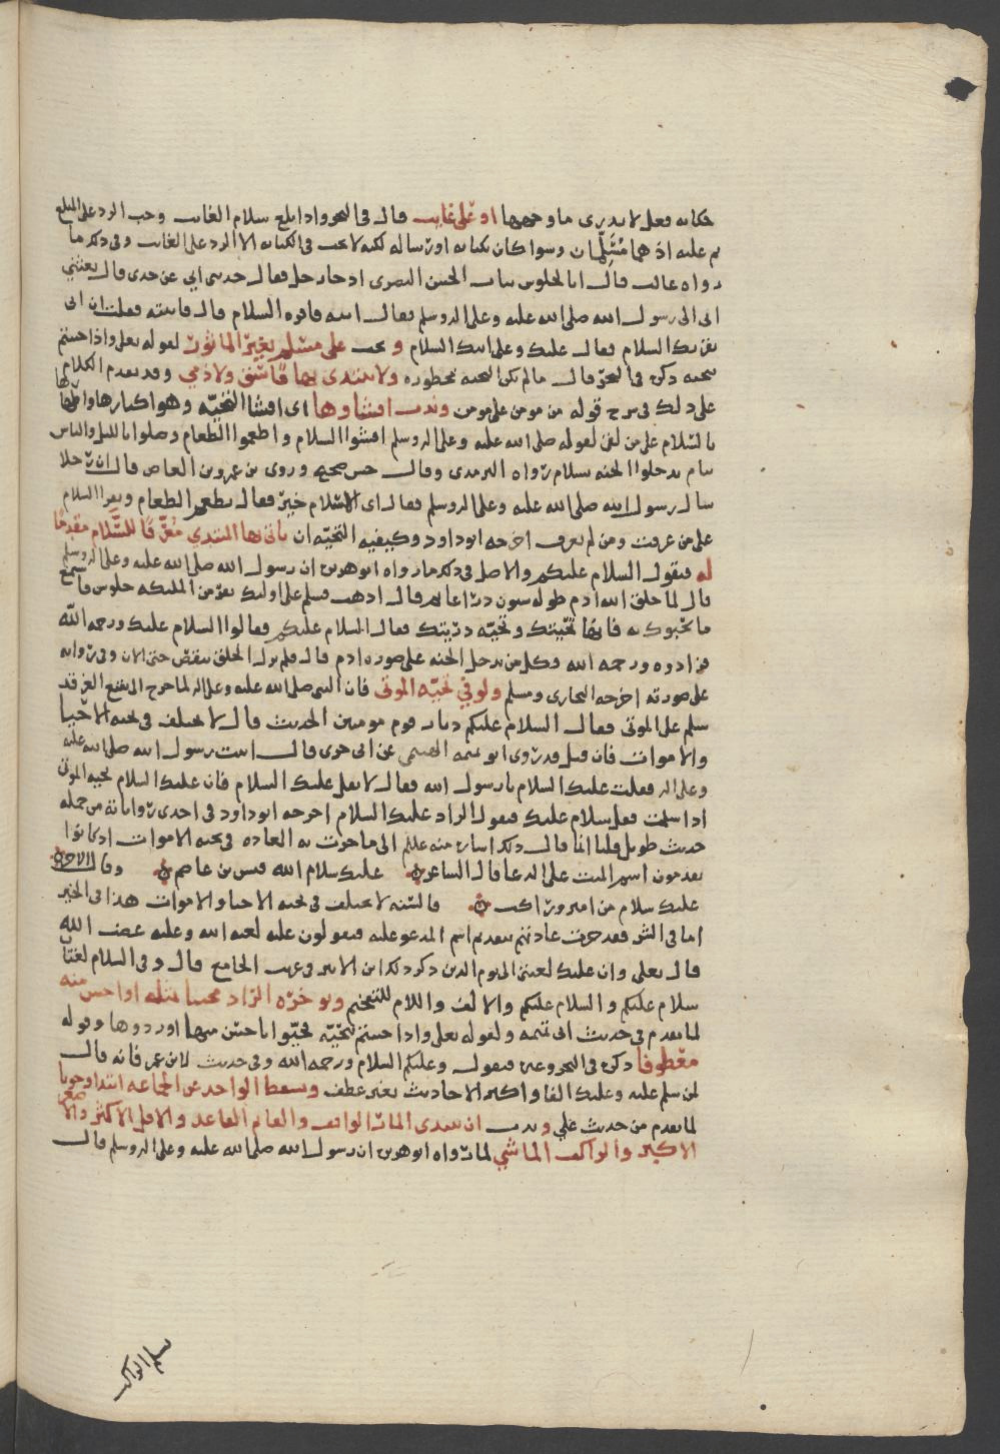 حكايه فعل لا يدرى ما وجهها او على غايب قال فى البحر واذا بلغ سلام الغايب وجب الرد على المبلغ
عليه اذ هما مسلمان وسوا كان بكتابه او رساله لكنه لا يجب فى الكتابه الا الرد على الغايب وفى ذلك ما
رواه غالب قال انا لجلوس بباب الحسن البصرى اذ جا رجل فقال حدثنى ابي عن جدى قال بعثني
ابى الى رسول الله صلى الله عليه وعلى اله وسلم فقال ائته فاقره السلام قال فاتيته فقلت ان ابى
يقريك السلام فقال عليك وعلى ابيك السلام ويجب على مسلم بغير الماثور لقوله تعلى واذا حييتم
بتحيه ذكره فى البحر قال ما لم تكن التحيه محظوره ولا يبتدى بها فاسق ولا ذمي وقد تقدم الكلام
على ذلك فى شرح قوله من مومن على مومن وندب افشاوها اى افشا التحيه وهو اكثارها واظهارها
بالسلام على من لقى لقوله صلى الله عليه وعلى اله وسلم افشوا السلام واطعموا الطعام وصلوا بالليل والناس
نيام تدخلوا الجنه بسلام رواه الترمذى وقال حسن صحيح وروى بن عمرو بن العاص قال ان رجلا
سال رسول الله صلى الله عليه وعلى اله وسلم فقال اى الاسلام خير فقال تطعم الطعام وتقرا السلام
على من عرفت ومن لم تعرف اخرجه ابو داود وكيفيه التحيه ان ياتى بها المبتدي معرفا للسلام مقدما
له فيقول السلام عليكم والاصل فى ذلك ما رواه ابو هريره ان رسول الله صلى الله عليه وعلى اله وسلم
قال لما خلق الله ادم طوله ستون ذراعا ثم قال اذهب فسلم على اولئك نفر من المليكه جلوس فاستمع
ما يحيونك به فانها تحيتك وتحيه ذريتك فقال السلام عليكم فقالوا السلام عليك ورحمه الله
فزادوه ورحمه الله فكل من يدخل الجنه على صوره ادم قال فلم يزل الخلق ينقص حتى الان وفى روايه
على صورته اخرجه البخارى ومسلم ولو في تحيه الموتى فان النبى صلى الله عليه وعلى اله لما خرج الى بقيع الغرقد
سلم على الموتى فقال السلام عليكم ديار قوم مومنين الحديث قال لا يختلف فى تحيه الاحيا
والاموات فان قيل قد روى ابو تميمه الهجيمى عن ابى جرى قال اتيت رسول الله صلى الله عليه
وعلى اله فقلت عليك السلام يا رسول الله فقال لا تقل عليك السلام فان عليك السلام تحيه الموتى
اذا سلمت فقل سلام عليك فيقول الراد عليك السلام اخرجه ابو داود فى احدى رواياته من جمله
حديث طويل قلنا انما قال ذلك اشاره منه عليلم الى ما جرت به العاده فى تحيه الاموات اذ كانوا
يقدمون اسم الميت على الدعا قال الشاعر عليك سلام الله قيس بن عاصم وقال الاخر
عليك سلام من امير وباركت فالسنه لا تختلف فى تحيه الاحيا والاموات هذا فى الخير
اما فى الشر فقد جرت عادتهم بتقديم اسم المدعو عليه فيقولون عليه لعنه الله وعليه غضب الله
قال تعلى وان عليك لعنتى الى يوم الدين ذكر ذلك ابن الاثير فى غريب الجامع قال وفى السلام لغتان
سلام عليكم والسلام عليكم والالف واللام للتفخيم ويوخره الراد مجيبا بمثله او احسن منه
لما تقدم فى حديث ابى تميمه ولقوله تعلى واذا حييتم بتحيه فحيوا باحسن منها او ردوها وقوله
معطوفا ذكره فى البحر وغيره فيقول وعليكم السلام ورحمه الله وفى حديث لابن عمر فانه قال
لمن سلم عليه وعليك الفا واكثر الاحاديث بغير عطف ويسقط الواحد عن الجماعه ابتدا وجوابا
لما تقدم من حديث علي وندب ان يبتدى المار الواقف والقايم القاعد والاقل الاكثر والاصغر
الاكبر والراكب الماشي لما رواه ابو هريره ان رسول الله صلى الله عليه وعلى اله وسلم قال
يسلم الراكب